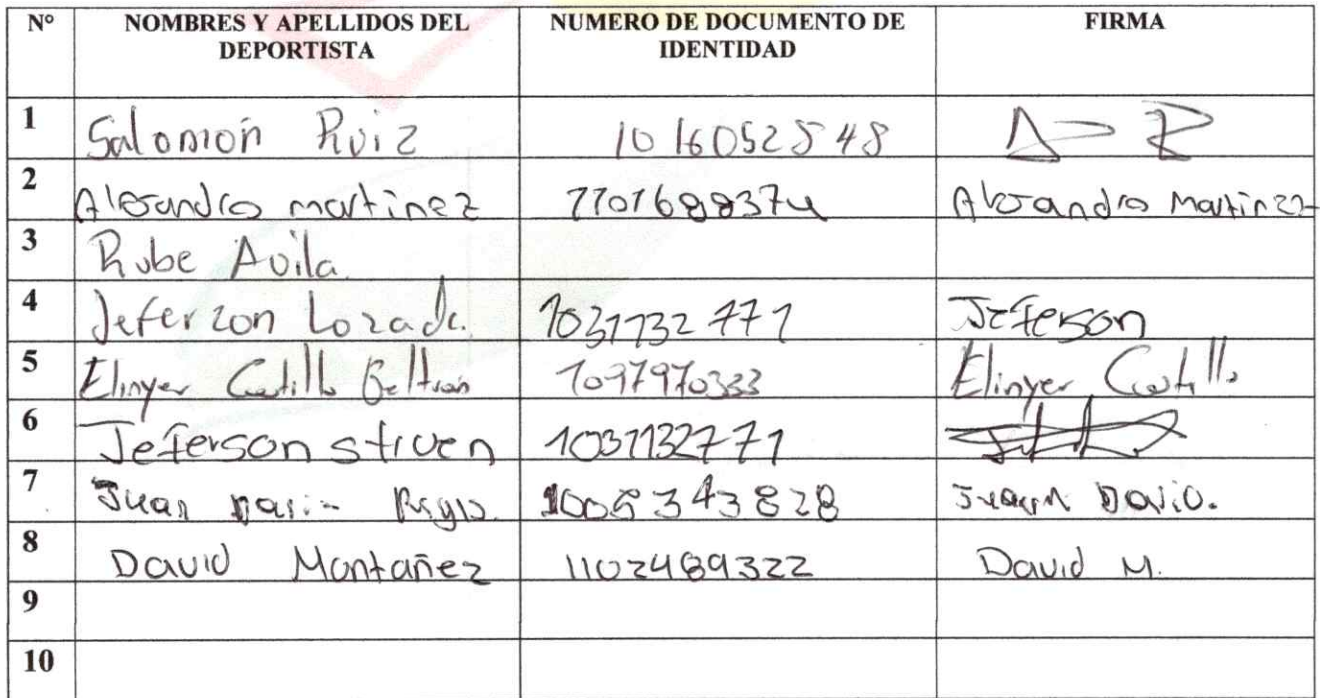 N° NOMBRES Y APELLIDOS DEL DEPORTISTA NUMERO DE DOCUMENTO DE IDENTIDAD FIRMA
1 Salomón Ruiz 1016052548
2 Alejandro martinez 1101688374 Alejandro Martinez
3 Rube Avila
4 Jeferzon Lozada 1031132771 Jeferson
5 Elinyer Castillo Beltran 1097970333 Elinyer Castillo
6 Jeferson stiven 1031132771
7 Juan 1005343828 Juan David.
8 David Montañez 1102489322 David M.
9
10